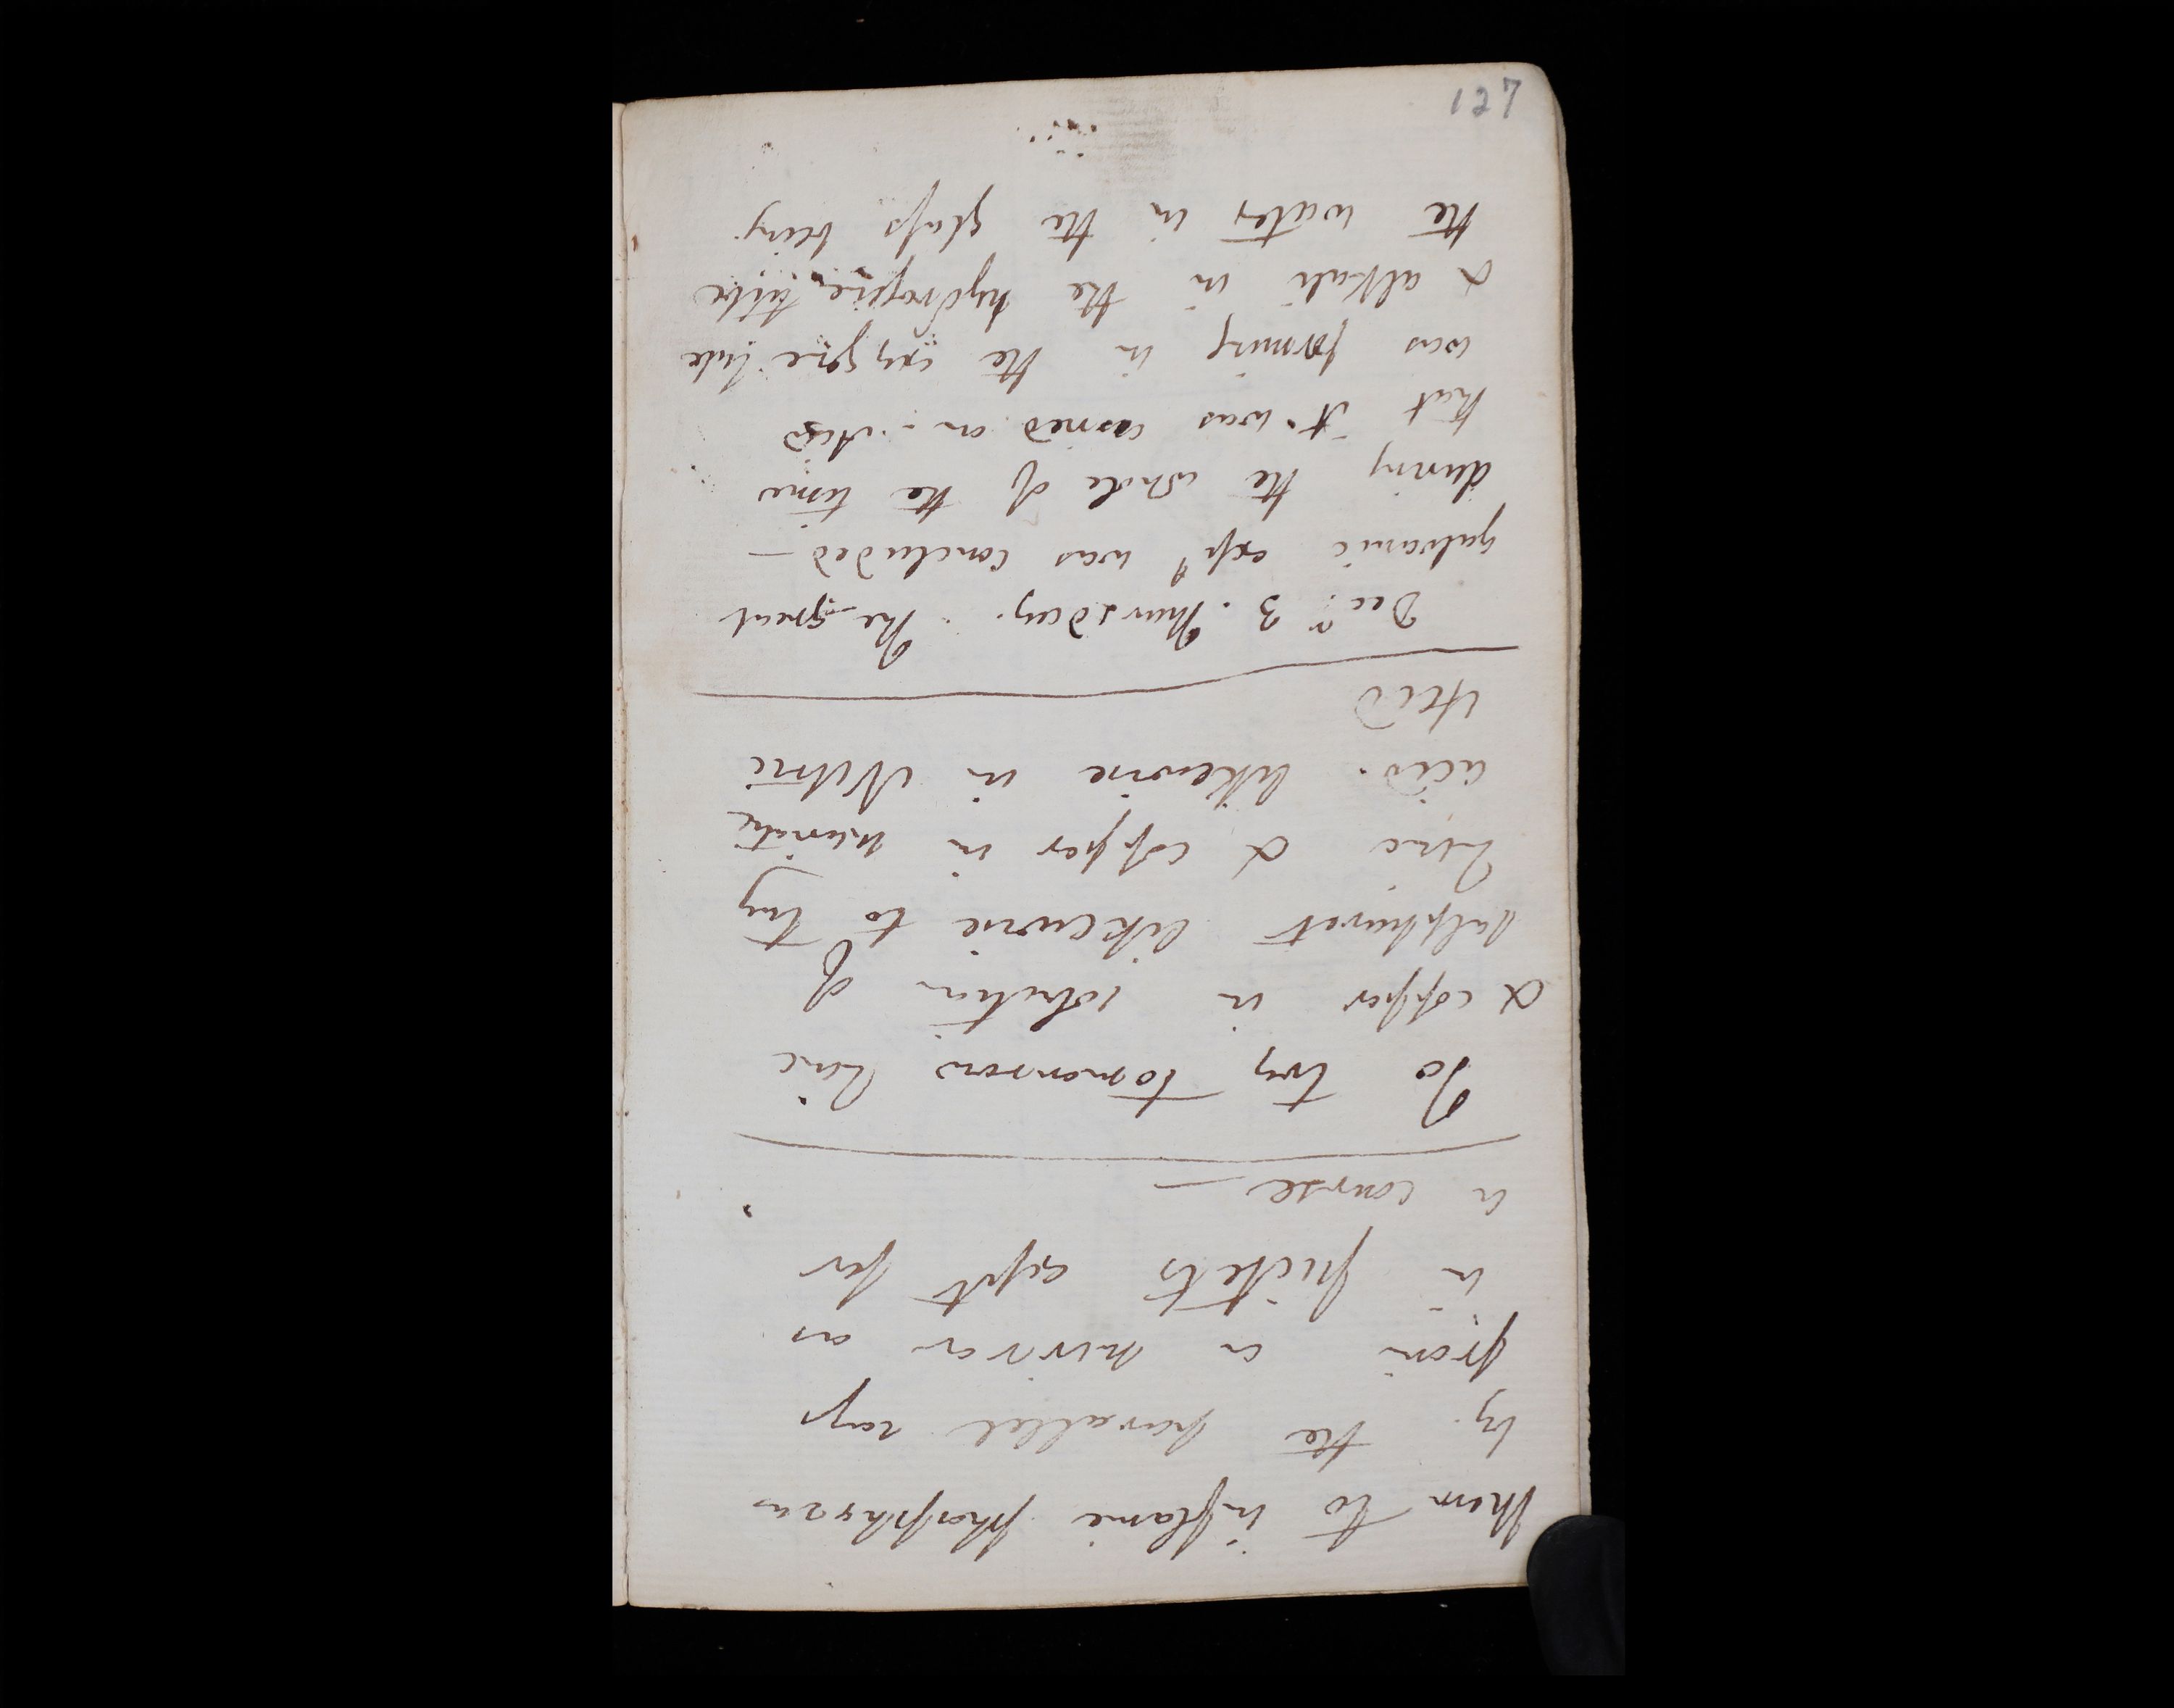 127
Them to inflame phosphorus
by the parallel rays
from a mirror as
in pictets expt for
a course —
To try tomorrow Zinc
& copper in solution of
sulphuret likewise to try
Zinc & copper in muriatic
acid. likewise in Nitric
Acid
Decr 3. Thursday. The great
galvanic expt was concluded —
during the whole of the time
that it was carried on - Acid
was forming in the oxygene tube
& alkali in the hydrogene tube
the water in the glass being